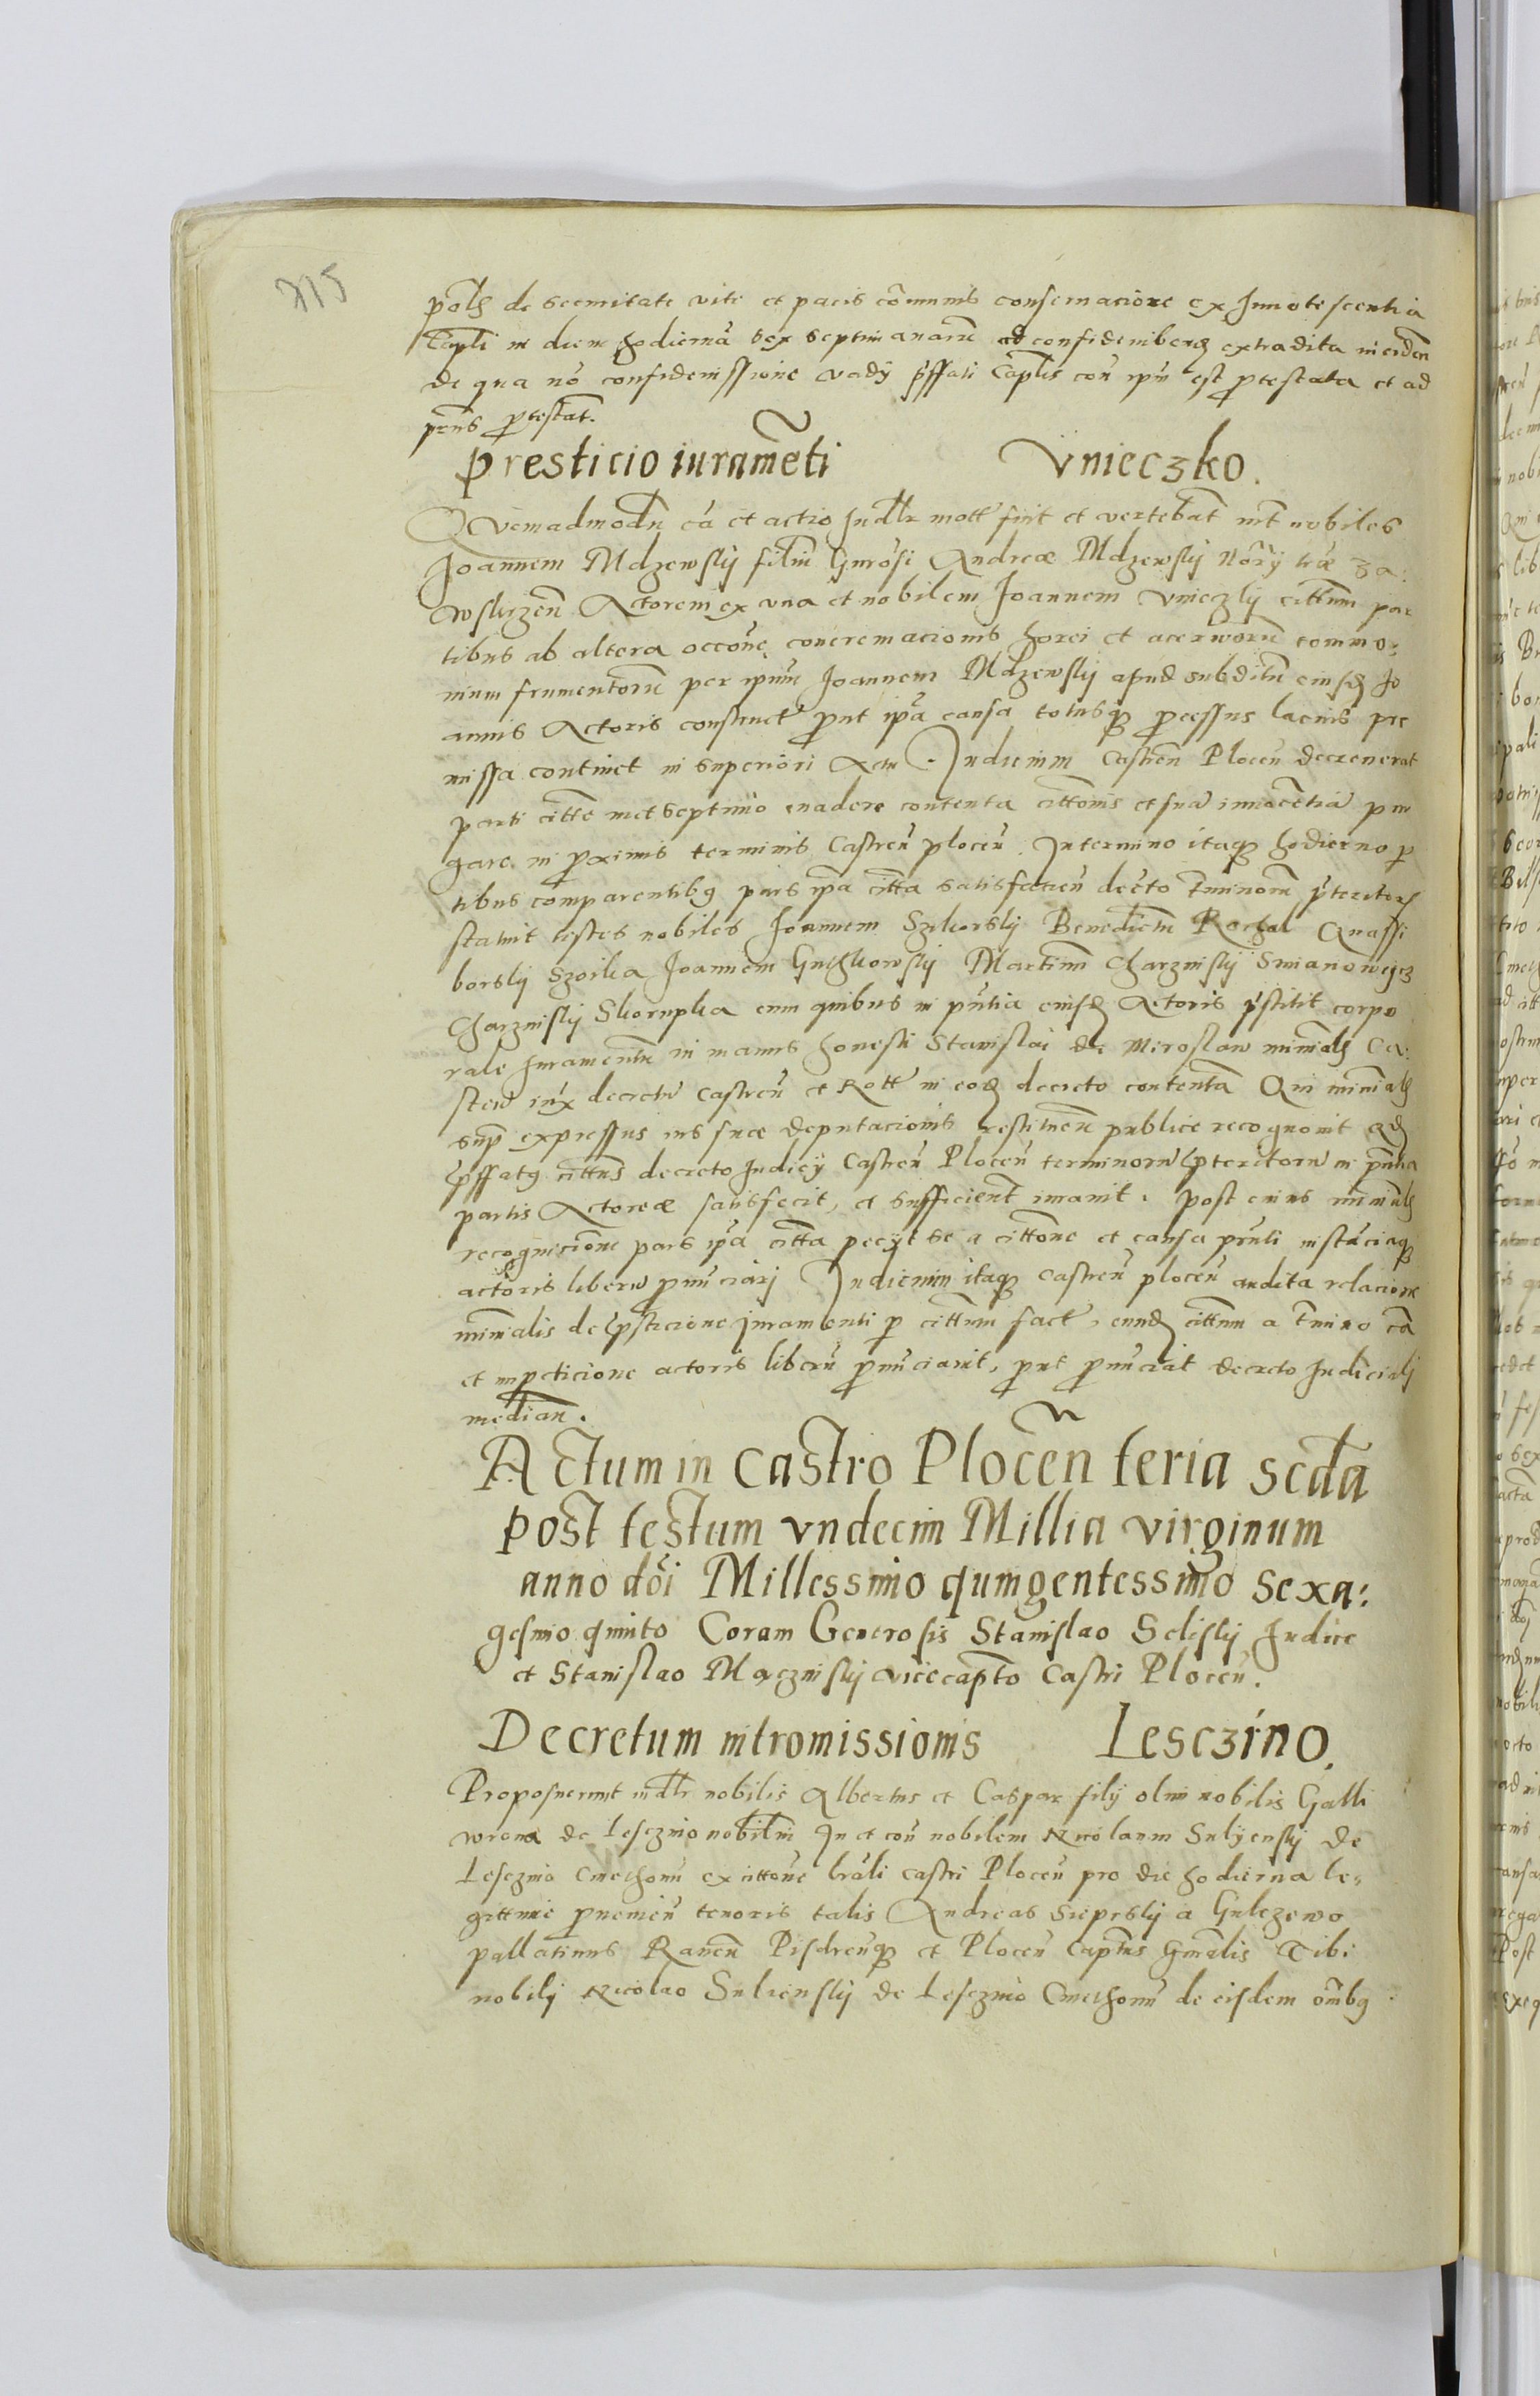 315
de securitate vite et pacis comunis conservacione ex Innotescentia
Captli in diem hodiernã sex septimanarũ ad confideiubend extradita
de qua nõ confideiussione vady pffati Captlis con ipm est protestata et ad
pnns protestat.
Presticio iuramẽti Vnieczko.
Qvemadmodũ cã et actio Judlr mott fuit et vertebat int nobiles
Joannem Mdzewskij filiũ Gnrosi Andreæ Mdzewskij
Actorem ex vna et nobilem Joannem Vnieczkij cittum par
tibus ab altera occõne concremacionis horei et acerworũ commo:
nium frumentorũ per ipsum Joannem Mdzewskij apud subditũ eiusd Jo
annis Actoris construct prout ipa causa totusq processus lacius pre
missa continet in superiori Actu. Judicium Castren Plocen decreuerat
parti citte metseptimo euadere contenta cittonis et suã innocẽtiã pur
gare in proximis terminis Castren plocen. In termino itaq hodierno p
tibus comparentibg pars ipa citta satisfacien decto tminorũ pteritorũ
statuit testes nobiles Joannem Szikorskij Benedictũ Rochal Quassi
borskij Szoika Joannem Martinũ Charzniskij
Charzniskij Skorupka cum quibus in pntia eiusd Actoris pstitit corpo
rale Juramentũ in manus honesti Stanislai de Miroslaw minialis Ca:
stren iux decretũ Castren et Rott in eod decreto contentã Qui minialis
sup expressus ius suæ deputacionis restituen publice recognouit qd
pffatg cittus decreto Judicy Castren Plocen terminorũ pteritorũ in pntia
partis Actoreæ satisfecit, et sufficient iurauit. Post cuius minialis
recognicione pars ipa citta pecyt se a cittone et causa pnti instãciaq
actoris liberũ pnũciari Judicium itaq Castren plocen audita relacione
minialis de psticione Juramenti p cittum fact, eund cittum a tmino cã
et impeticione actoris liberũ pnũciauit, prout pnũciat decreto Judiciali
median.
Actum in castro Plocen feria scda
post festum vndecim Millia virginum
anno dõi Millessimo quingentessimo sexa:
gesimo quinto Coram Generosis Stanislao Seliskij Judice
et Stanislao Mącznskij vicecapto Castri Plocen.
Decretum intromissionis Lesczino.
Proposuerunt iudlr nobilis Albertus et Caspar filij olim nobilis Galli
wrona de Lesczino nobilim In et con nobilem Nicolaum Sulyenskij de
Lesczino Cmethonũ ex cittone lrali castri Plocen pro die hodierna le,
gittime pnenien tenoris talis Andreas Sieprskij a Gulczewo
pallatinus Rauen Pisdrenq et Plocen Captus Gnralis Tibi
nobilij Nicolao Sulienskij de Lesczino Cmethonũ de eisdem omibg